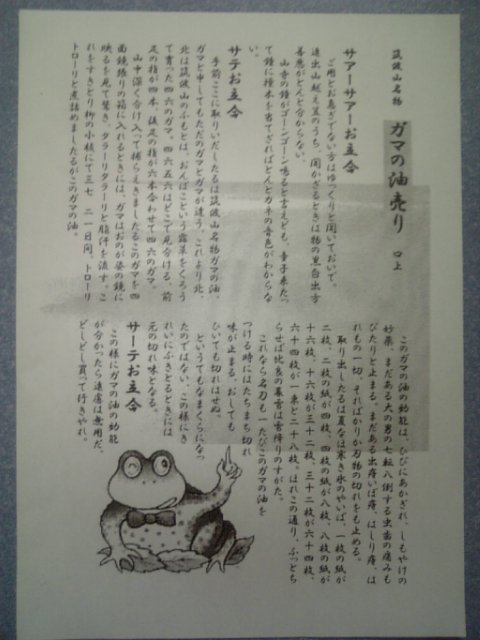 筑波山名物 ガマの油売り 口上
サアーサアーお立合
ご用とお急ぎでない方はゆっくりと聞いておいで。
遠出山越え笠のうち、聞かざるときは物の黒白出方
善悪がとんと分からない。
山寺の鐘がゴーンゴーン鳴ると言えども、童子来たっ
て鐘に撞木を当てざればとんとカネの音色がわからな
い。
サテお立合
手前ここに取りいだしたるは筑波山名物ガマの油、
ガマと申してもただのガマとガマが違う。これより北、
北は筑波山のふもとは、おんばこという露草をくろう
て育った四六のガマ。四六五六はどこで見分ける。前
足の指が四本、後足の指が六本合わせて四六のガマ。
山中深く分け入って捕らえきましたるこのガマを四
面鏡張りの箱に入れるときには、ガマはおのが姿の鏡に
映るを見て驚き、タラーリタラーリと脂汗を流す。こ
れをすきとり柳の小枝にて三七 二十一日間、トローリ
トローリと煮詰めましたるがこのガマの油。
このガマの油の効能は、ひびにあかぎれ、しもやけの
妙薬、まだある大の男の七転八倒する虫歯の痛みも
ぴたりと止まる。まだある出痔いぼ痔、はしり痔、は
れもの一切、そればかりか刃物の切れをも止める。
取り出したるは夏なお寒き氷のやいば、一枚の紙が
二枚、二枚の紙が四枚、四枚の紙が八枚、八枚の紙が
十六枚、十六枚が三十二枚、三十二枚が六十四枚、
六十四枚が一束と二十八枚。ほれこの通り、ふっとち
らせば比良の暮雪は雪降りのすがた。
これなる名刀も一たびこのガマの油を
つける時にはたちまち切れ
味が止まる、おしても
ひいても切れはせぬ。
というてもなまくらになっ
たのではない、この様にき
れいにふきとるときには
元の切れ味となる。
サーテお立合
この様にガマの油の効能
が分かったら遠慮は無用だ、
どしどし買って行きやれ。